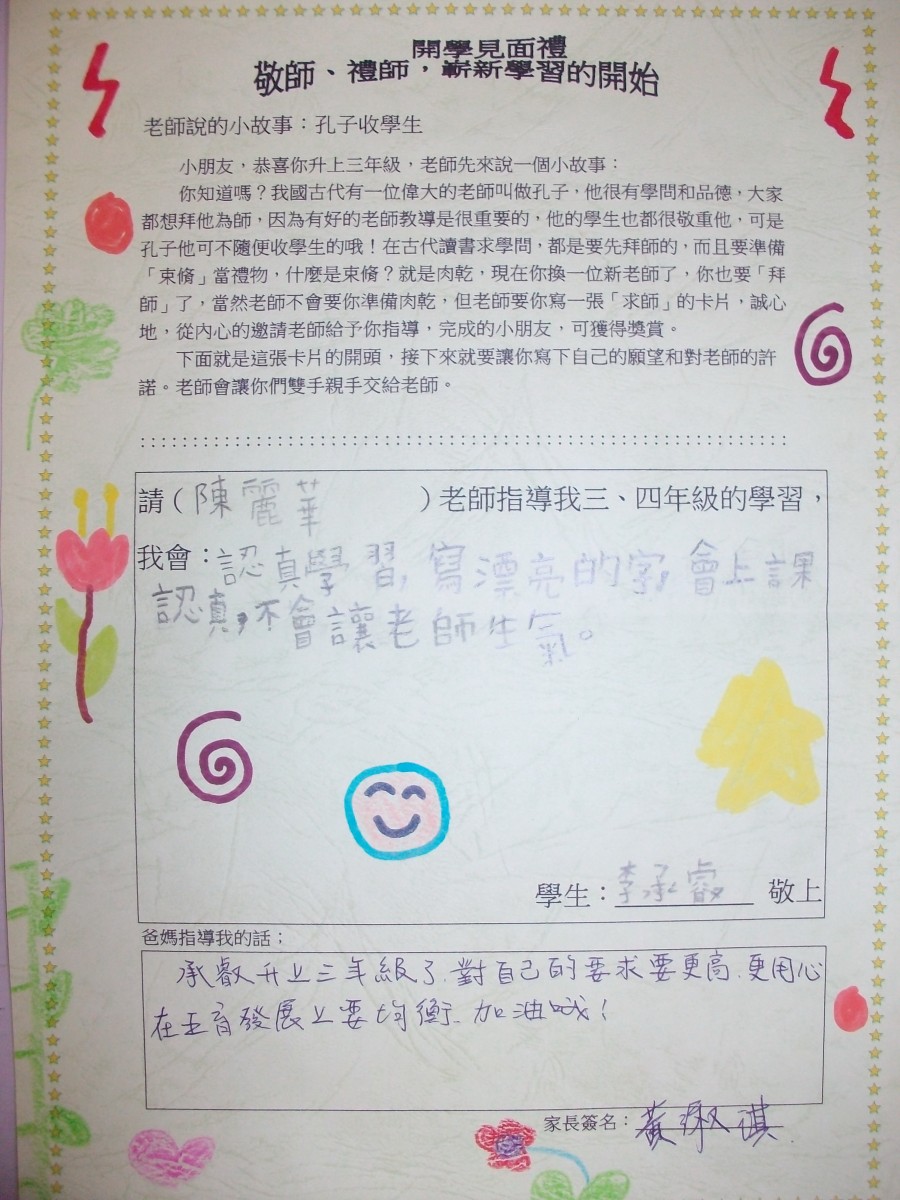 開學見面禮
敬師、禮師，嶄新學習的開始
老師說的小故事：孔子收學生
小朋友，恭喜你升上三年級，老師先來說一個小故事：
你知道嗎？我國古代有一位偉大的老師叫做孔子，他很有學問和品德，大家
都想拜他為師，因為有好的老師教導是很重要的，他的學生也都很敬重他，可是
孔子他可不隨便收學生的哦！在古代讀書求學問，都是要先拜師的，而且要準備
「束脩」當禮物，什麼是束脩？就是肉乾，現在你換一位新老師了，你也要「拜
師」了，當然老師不會要你準備肉乾，但老師要你寫一張「求師」的卡片，誠心
地，從內心的邀請老師給予你指導，完成的小朋友，可獲得獎賞。
下面就是這張卡片的開頭，接下來就要讓你寫下自己的願望和對老師的許
諾。老師會讓你們雙手親手交給老師。
請（陳麗華）老師指導我三、四年級的學習，
我會：認真學習，寫漂亮的字，會上課
認真，不會讓老師生氣。
學生：李承叡 敬上
爸媽指導我的話；
承叡升上三年級了，對自己的要求要更高，更用心
在五育發展上要均衡，加油哦！
家長簽名：黃淑琪